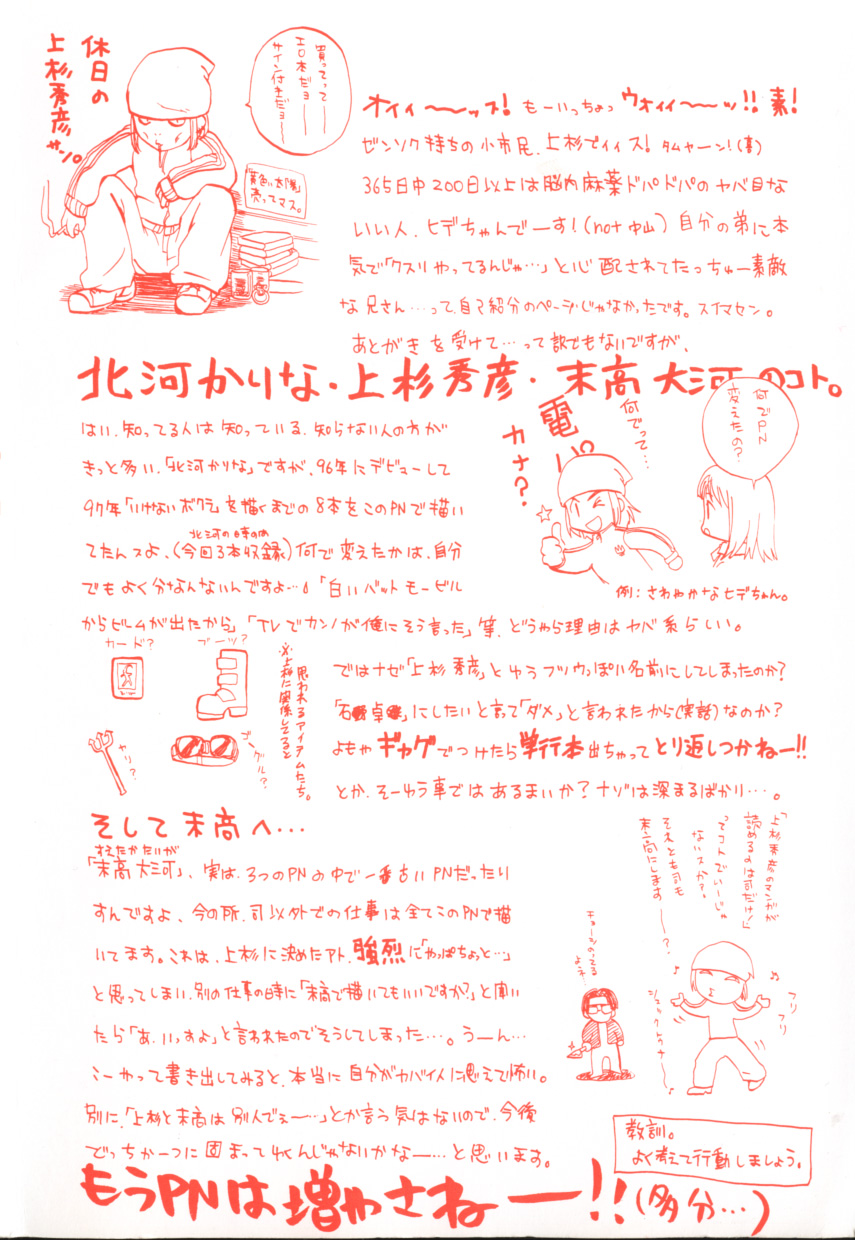 休日の
上杉秀彦
さん。
買ってって——
エロ本だョ——
サイン付きだョ——
売ってマス。
オイィ〜〜ッス! もーいっちょっ ウォィィ〜〜ッ!! 素!
ゼンソク持ちの小市民、上杉でイイス! タムャーン!(喜)
365日中200日以上は脳内麻薬ドパドパのヤバ目な
いい人、ヒデちゃんでーす!(not中山) 自分の弟に本
気で「クスリやってるんじゃ…」と心配されてたっちゅー素敵
な兄さん……って、自己紹介のページじゃなかったです。スイマセン。
あとがきを受けて…って訳でもないですが、
北河かりな・上杉秀彦・末高大河のコト。
何でPN
変えたの?
何でって…
電パ
カナ?
例:さわやかなヒデちゃん。
はい、知ってる人は知っている、知らない人の方が
きっと多い、「北河かりな」ですが、96年にデビューして
97年「いけないボクラ」を描くまでの8本をこのPNで描い
てたんスよ、(今回3本収録)何で変えたかは、自分
北河の時のは
でもよく分なんないんですよ…。「白いバットモービル
からビームが出たから」「TVでカンノが俺にそう言った」等、どうやら理由はヤバ系らしい。
カード?
ブーツ?
ヤリ?
ゴーグル?
※上杉に関係してると
思われるアイテムたち。
ではナゼ「上杉秀彦」とゆうフツウっぽい名前にしてしまったのか?
「石 卓 」にしたいと言って「ダメ」と言われたから(実話)なのか?
よもやギャグでつけたら単行本出ちゃってとり返しつかねー!!
とか、そーゆう事ではあるまいか? ナゾは深まるばかり…。
そして末高へ…
すえたかたいが
「末高大河」、実は、3つのPNの中で一番古いPNだったり
すんですよ、今の所、司以外での仕事は全てこのPNで描
いてます。これは、上杉に決めたアト、強烈に「やっぱちょっと…」
と思ってしまい、別の仕事の時に「末高で描いてもいいですか?」と聞い
たら「あ、いっすよ」と言われたのでそうしてしまった…。うーん…
こーやって書き出してみると、本当に自分がヤバイ人に思えて怖い。
別に、「上杉と末高は別人でぇ〜…」とか言う気はないので、今後
でっちか一つに固まってくんじゃないかなー…と思います。
「上杉秀彦のマンガが
読めるのは司だけ!」
ってコトでいーじゃ
ないスか?
それとも司も
末高にします——?
フリ
フリ
教訓。
よく考えて行動しましょう。
もうPNは増やさねーー!!(多分…)